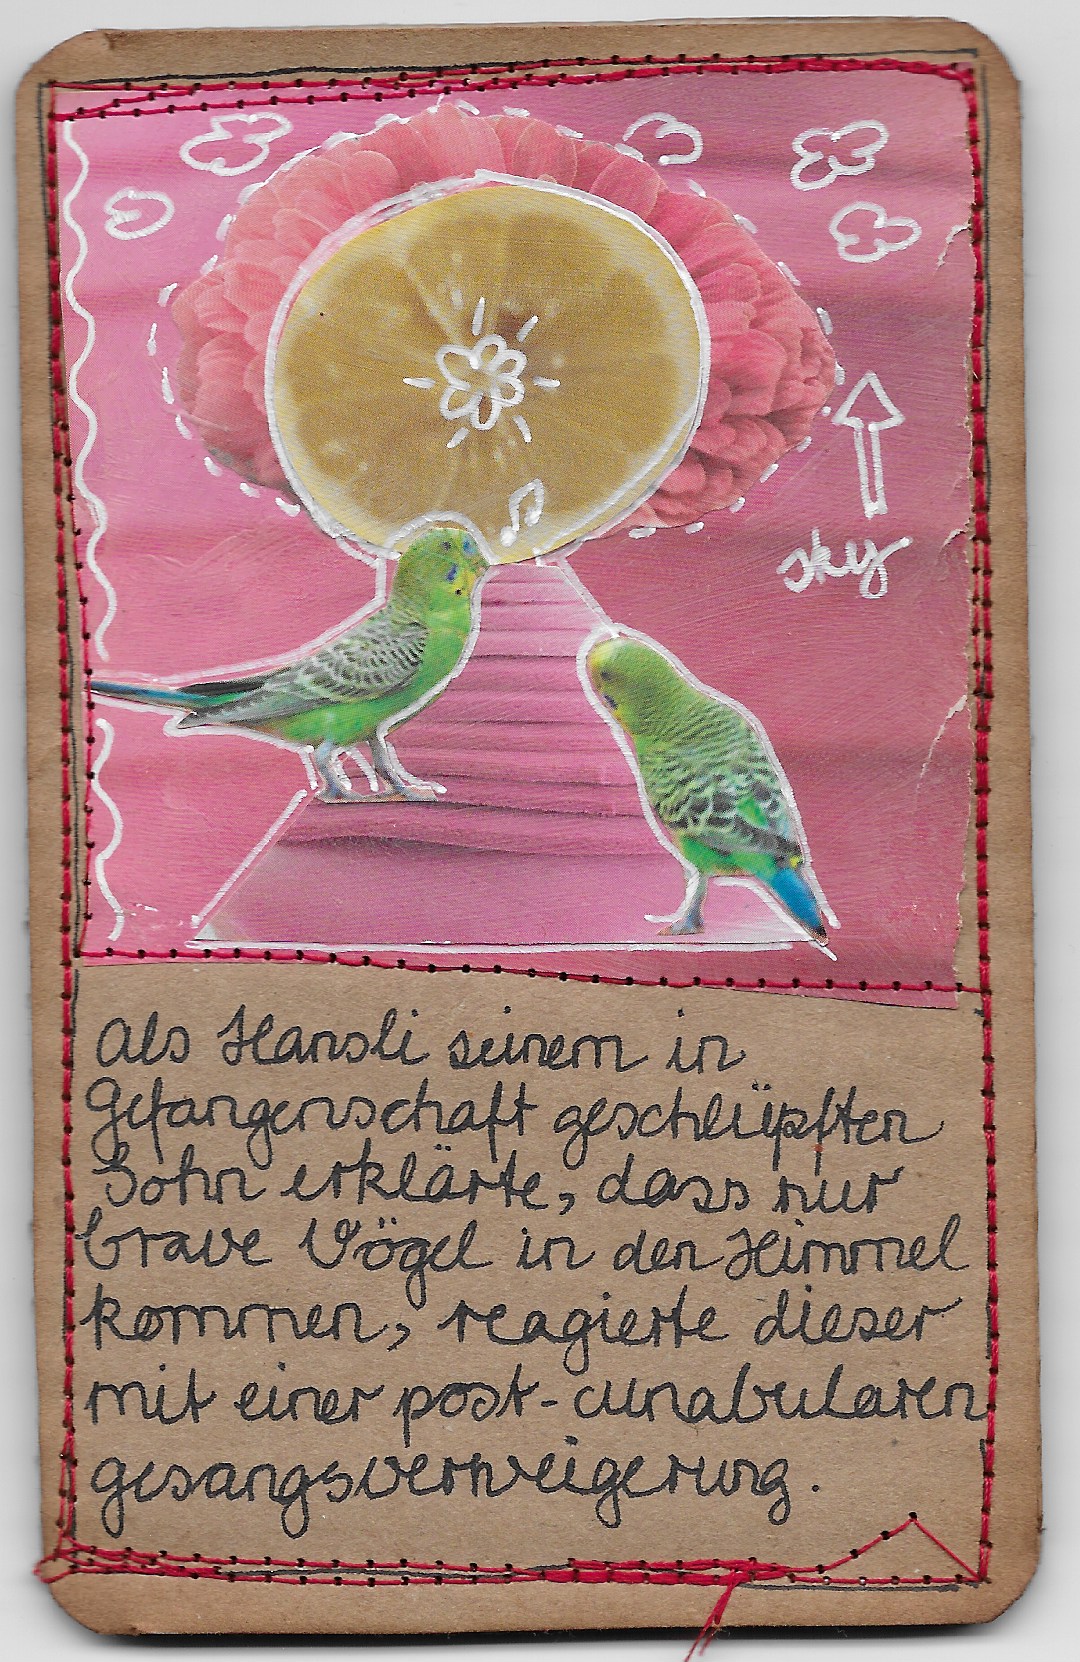 sky
Als Hansli seinem in
Gefangenschaft geschlüpften
Sohn erklärte, dass nur
brave Vögel in den Himmel
kommen, reagierte dieser
mit einer post-cunabularen
gesangsverweigerung.